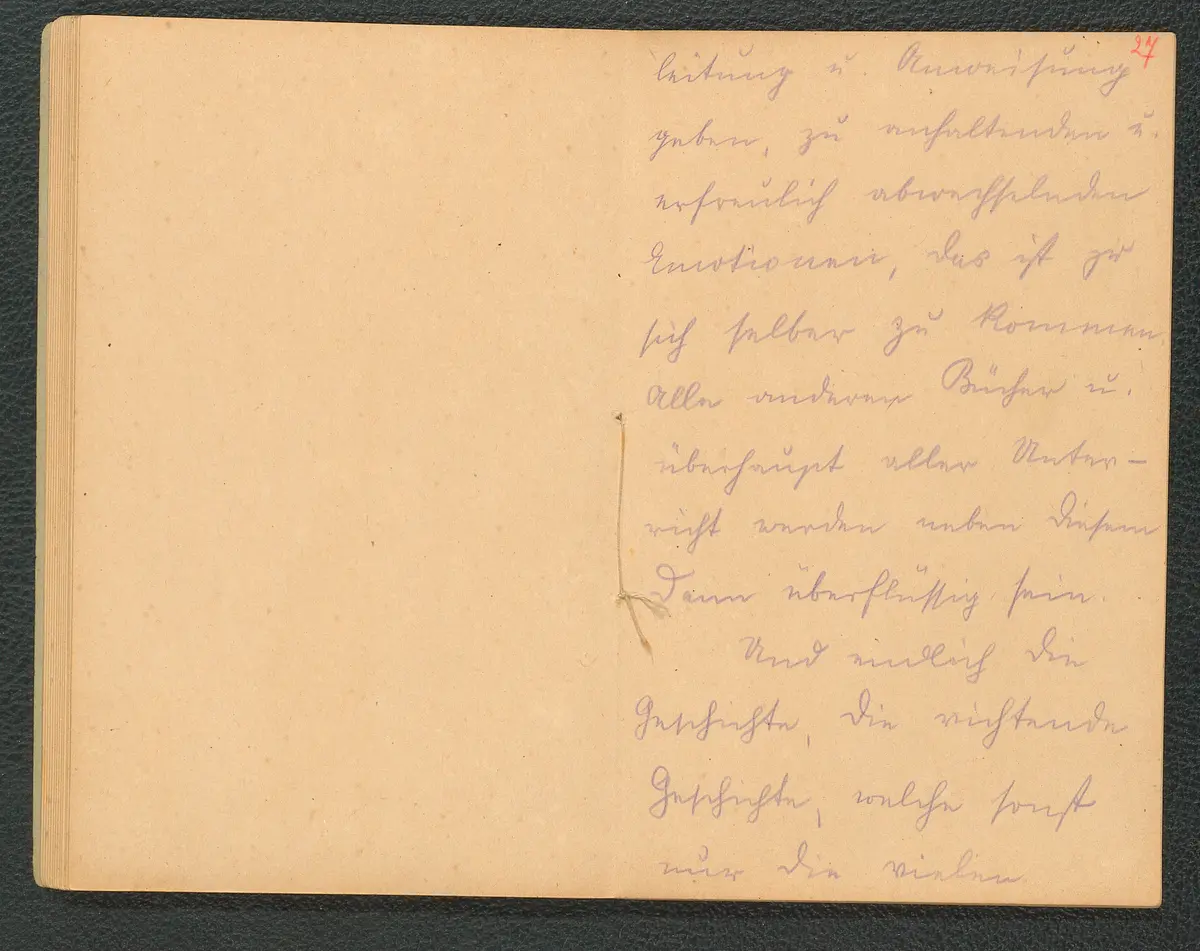 27
leitung u. Anweisung
geben, zu anhaltenden u.
erfreulich abwechselnden
Emotionen, das ist zu
sich selber zu kommen.
Alle anderen Bücher u.
überhaupt aller Unter-
richt werden neben diesem
dann überflüssig sein.
Und endlich die
Geschichte, die richtende
Geschichte, welche sonst
nur die vielen